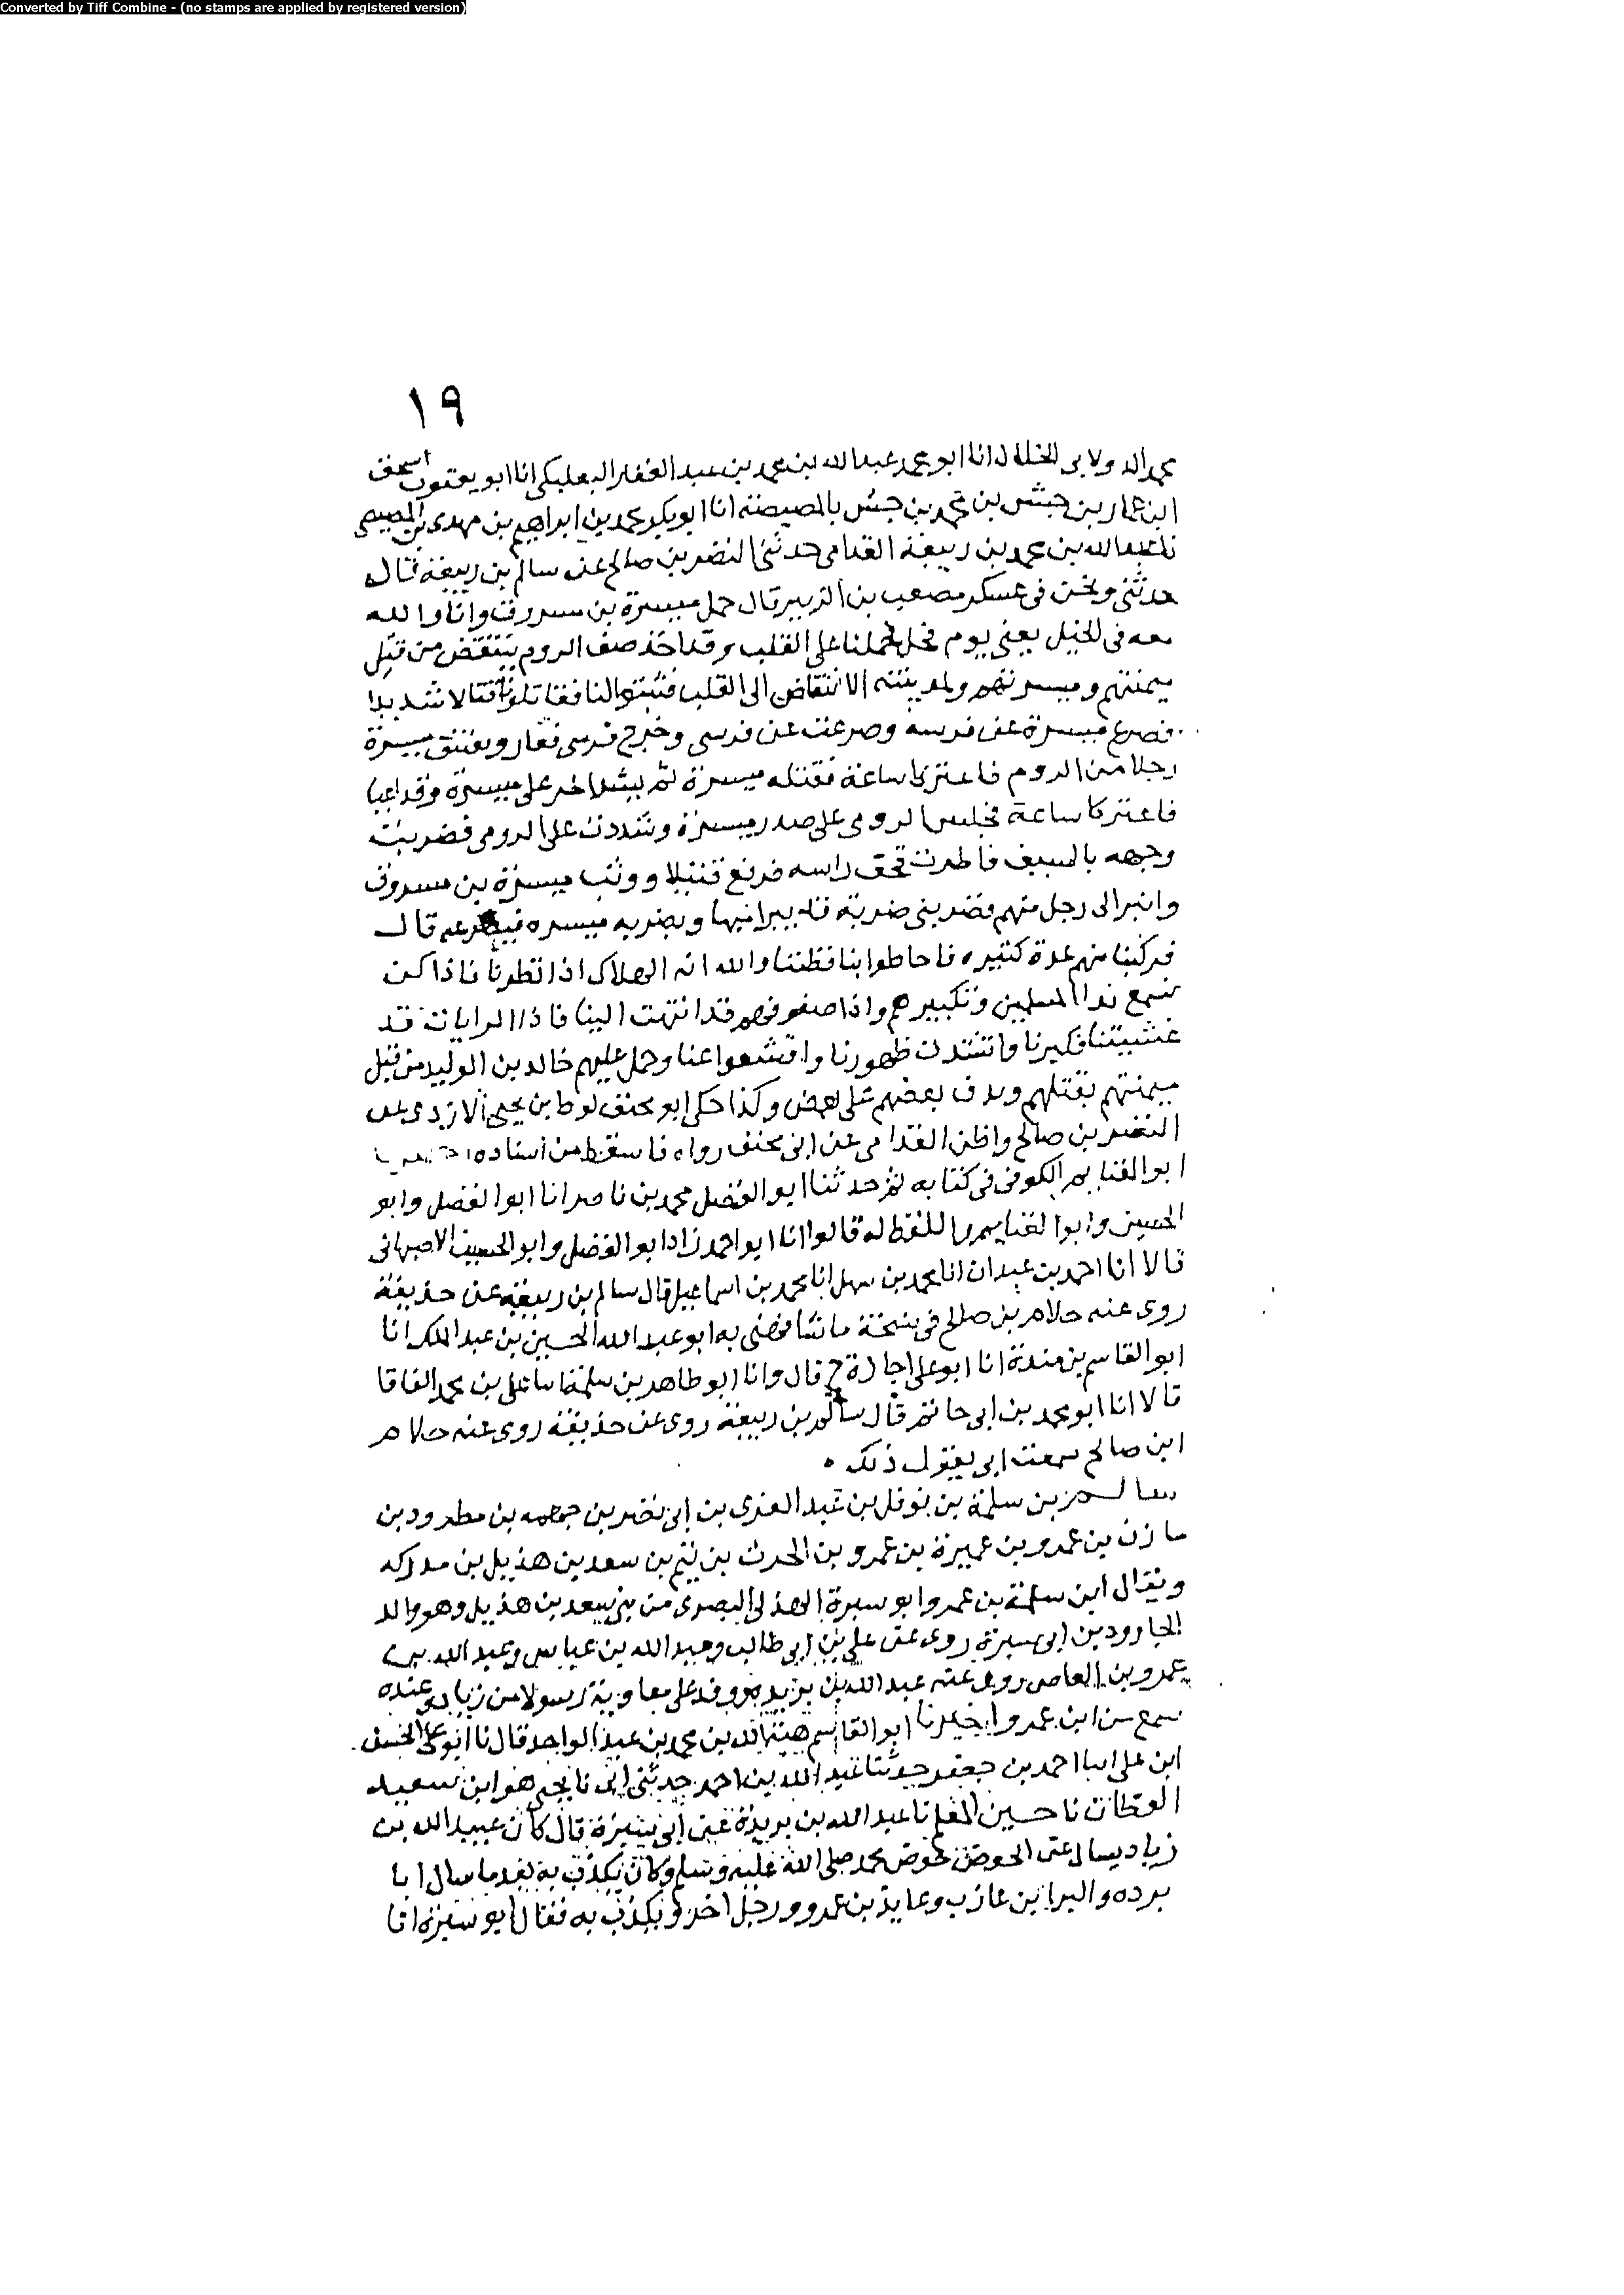 Converted by Tiff Combine - (no stamps are applied by registered version)
١٩
انا ابو محمد عبدالله بن محمد بن عبد الغفار البعلبكى انا ابو يعقوب اسحق
ابن عمار بن حبش بن محمد بن حبش بالمصيصة انا ابو بكر محمد بن ابراهيم بن مهدى المصيصى
نا عبدالله بن محمد بن ربيعة القدامى حدثنى النضر بن صالح عن سالم بن ربيعة قال
حدثنى ونحن فى عسكر مصعب بن الزبير قال حمل ميسرة بن مسروق وانا والله
معه فى الخيل يعنى يوم فحل فحملنا على القلب وقد اخذ صف الروم ينتقض من قبل
ميمنتهم وميسرتهم ولم ينته الانتقاض الى القلب فثبتوا لنا فقاتلونا قتالا شديدا
فصرع ميسرة عن فرسه وصرعت عن فرسى وخرج فرسى فعار ويعتنق ميسرة
رجلا من الروم فاعتركا ساعة فقتله ميسرة ثم يشد اخر على ميسرة وقد اعيا
فاعتركا ساعة فجلس الرومى على صدر ميسرة وشددت على الرومى فضربت
وجهه بالسيف فاطرت قحف راسه فوقع قتيلا ووثب ميسرة بن مسروق
وانبرا لى رجل منهم فضربنى ضربة ويضربه ميسره فيصرعه قال
فركبنا منهم عدة كثيره فاحاطوا بنا فظننا والله انه الهلاك اذ نظرنا فاذا نحن
نسمع ندا المسلمين وتكبيرهم واذا صفوفهم قد انتهت الينا فاذا الرايات قد
غشيتنا فكبرنا واشتدت ظهورنا واقشعوا عنا وحمل عليهم خالد بن الوليد من قبل
ميمنتهم يقتلهم ويدق بعضهم على بعض وكذا حكى ابو مخنف لوط بن يحيى الازدى عن
النضر بن صالح واظن القدامى عن ابى مخنف رواه فاسقط من اسناده
ابو الغنايم الكوفى فى كتابه ثم حدثنا ابو الفضل محمد بن ناصر انا ابو الفضل وابو
الحسين وابو الغنايم واللفظ له قالوا انا ابو احمد زاد ابو الفضل وابو الحسين الاصبهانى
قالا انا احمد بن عبدان انا محمد بن سهل انا محمد بن اسماعيل قال سالم بن ربيعة عن حذيفة
روى عنه حلام بن صالح فى نسخة ما شافهنى به ابو عبد الله الحسين بن عبد الملك انا
ابو القاسم بن مندة انا ابو على اجازة ح قال وانا ابو طاهر بن سلمة انا على بن محمد الفافا
قالا انا ابو محمد بن ابى حاتم قال سالم بن ربيعة روى عن حذيفة روى عنه حلام
ابن صالح سمعت ابى يقول ذلك •
سالم بن سلمة بن نوفل بن عبد العزى بن ابى نصر بن جهمه بن مطرود بن
مازن بن عمرو بن عميرة بن عمرو بن الحرث بن تيم بن سعد بن هذيل بن مدركه
ويقال ابن سلمة بن عمرو ابو سبرة الهذلى البصرى من بنى سعد بن هذيل وهو والد
الجارود بن ابى سبرة روى عن على بن ابى طالب وعبد الله بن عباس وعبد الله بن
عمرو بن العاص روى عنه عبد الله بن بريدة ووفد على معاوية رسولا من زياد وعنده
سمع من ابن عمرو اخبرنا ابو القاسم هبة الله بن محمد بن عبد الواحد قال نا ابو على الحسن
ابن على انا احمد بن جعفر حدثنا عبد الله بن احمد حدثنى ابى نا يحيى هو ابن سعيد
القطان نا حسين المعلم نا عبد الله بن بريدة عن ابى سبرة قال كان عبيد الله بن
زياد يسال عن الحوض حوض محمد صلى الله عليه وسلم وكان يكذب به بعد ما سال ابا
برده والبرا بن عازب وعايذ بن عمرو ورجل اخر وكان يكذب به فقال ابو سبرة انا